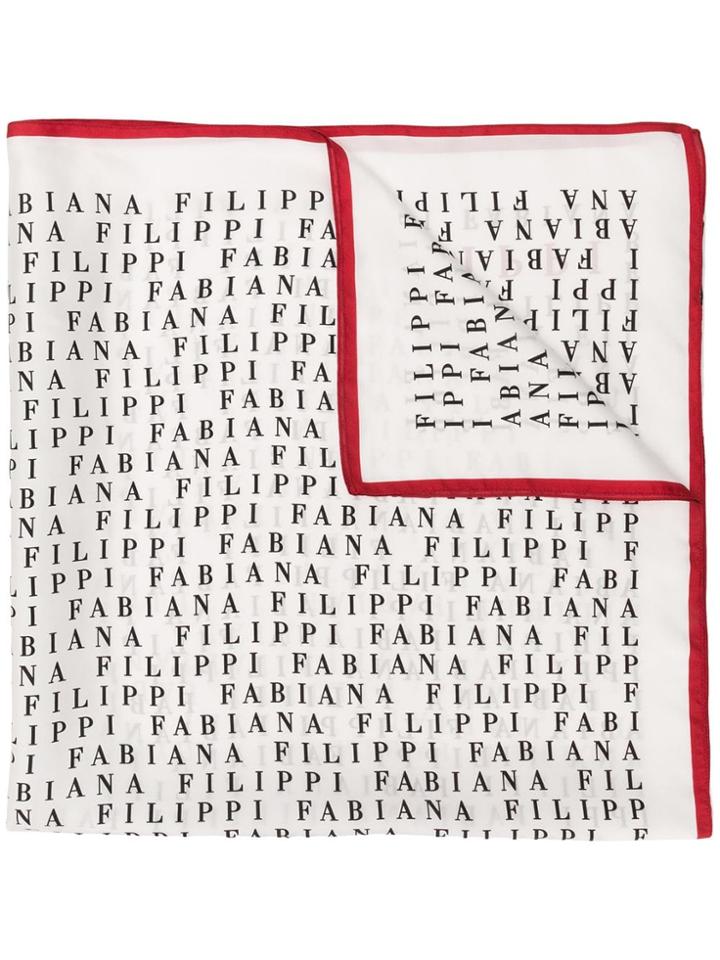 ABIANA FILIPP
NA FILIPPI FA
FILIPPI FABIA
LIPPI FABIANA
PI FABIANA FIL
BIANA FILIPPI
NA FILIPPI FA
FILIPPI FABIA
LIPPI FABIANA
PI FABIANA FIL
BIANA FILIPPI
NA FILIPPI FABIANA FILIPP
FILIPPI FABIANA FILIPPI F
LIPPI FABIANA FILIPPI FABI
PI FABIANA FILIPPI FABIANA
BIANA FILIPPI FABIANA FIL
NA FILIPPI FABIANA FILIPP
FILIPPI FABIANA FILIPPI F
LIPPI FABIANA FILIPPI FABI
PI FABIANA FILIPPI FABIANA
BIANA FILIPPI FABIANA FIL
NA FILIPPI FABIANA FILIPP
FILIPPI FABIANA FILIPPI F
FILIPPI F
IPPI FAB
I FABI
ABIAN
ANA
FIL
IP